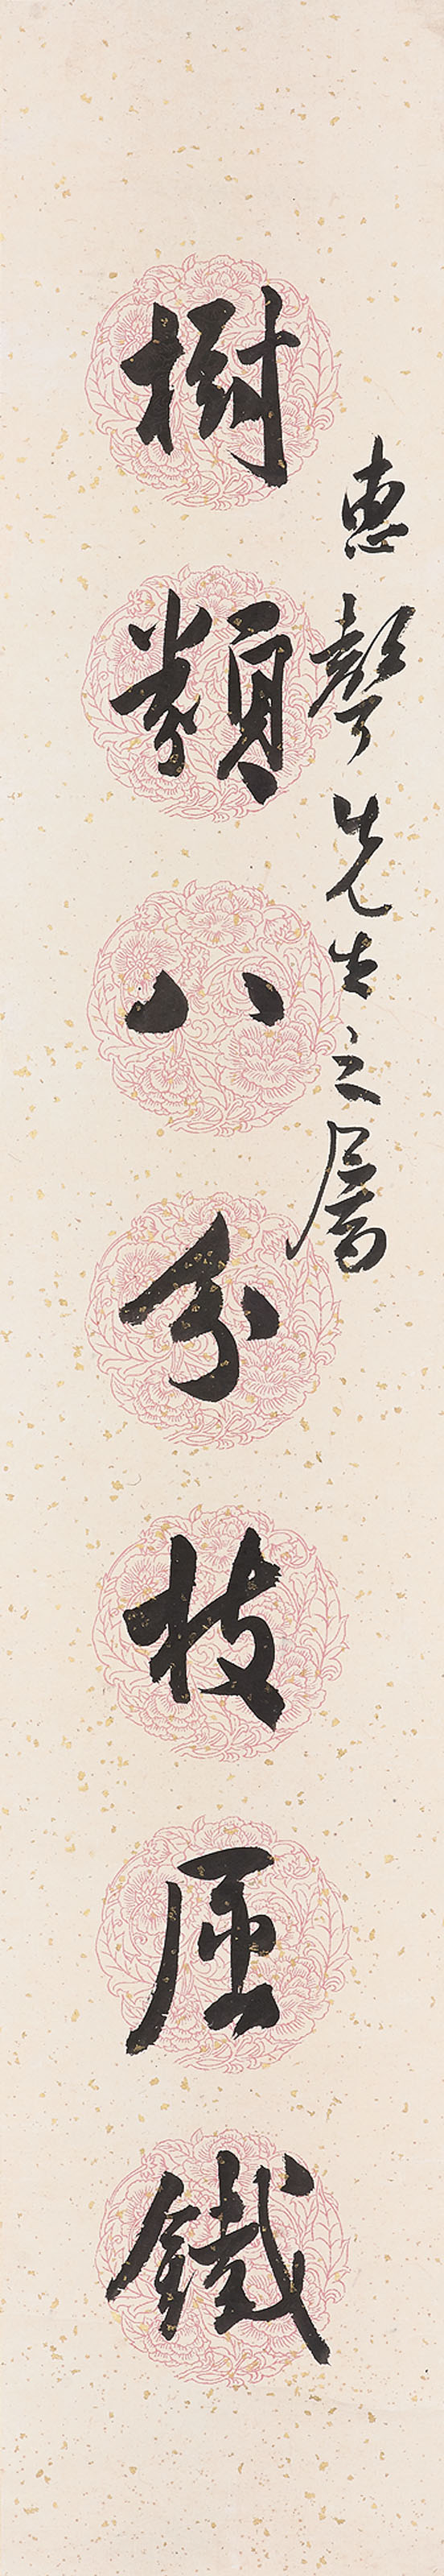 惠聲先生之屬
樹類八分枝屈鐵